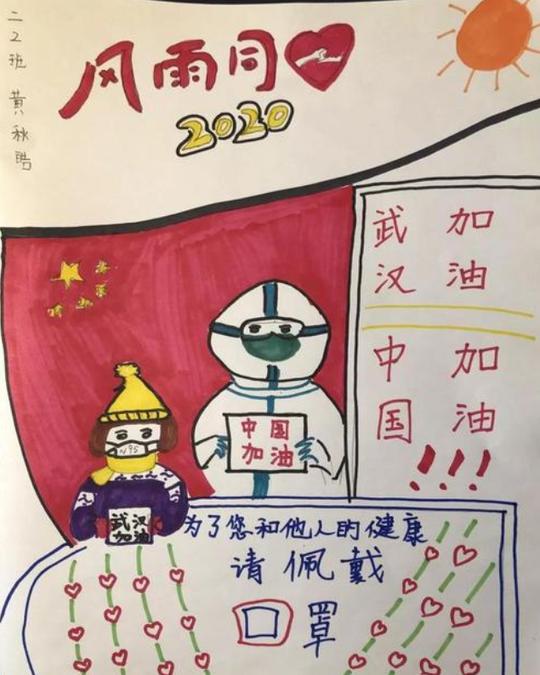 二2班 黄秋皓
风雨同
2020
武汉
加油
中国
加油
!!!
中国
加油
N95
武汉
加油
为了您和他人的健康
请佩戴
口罩